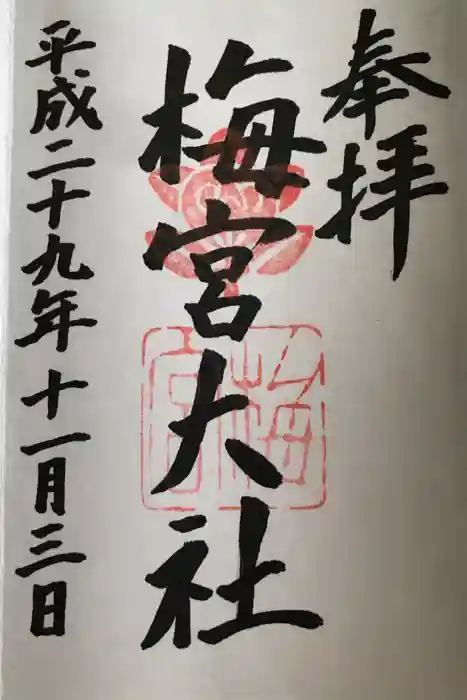 奉拝
梅宮大社
梅宮
平成二十九年十一月三日